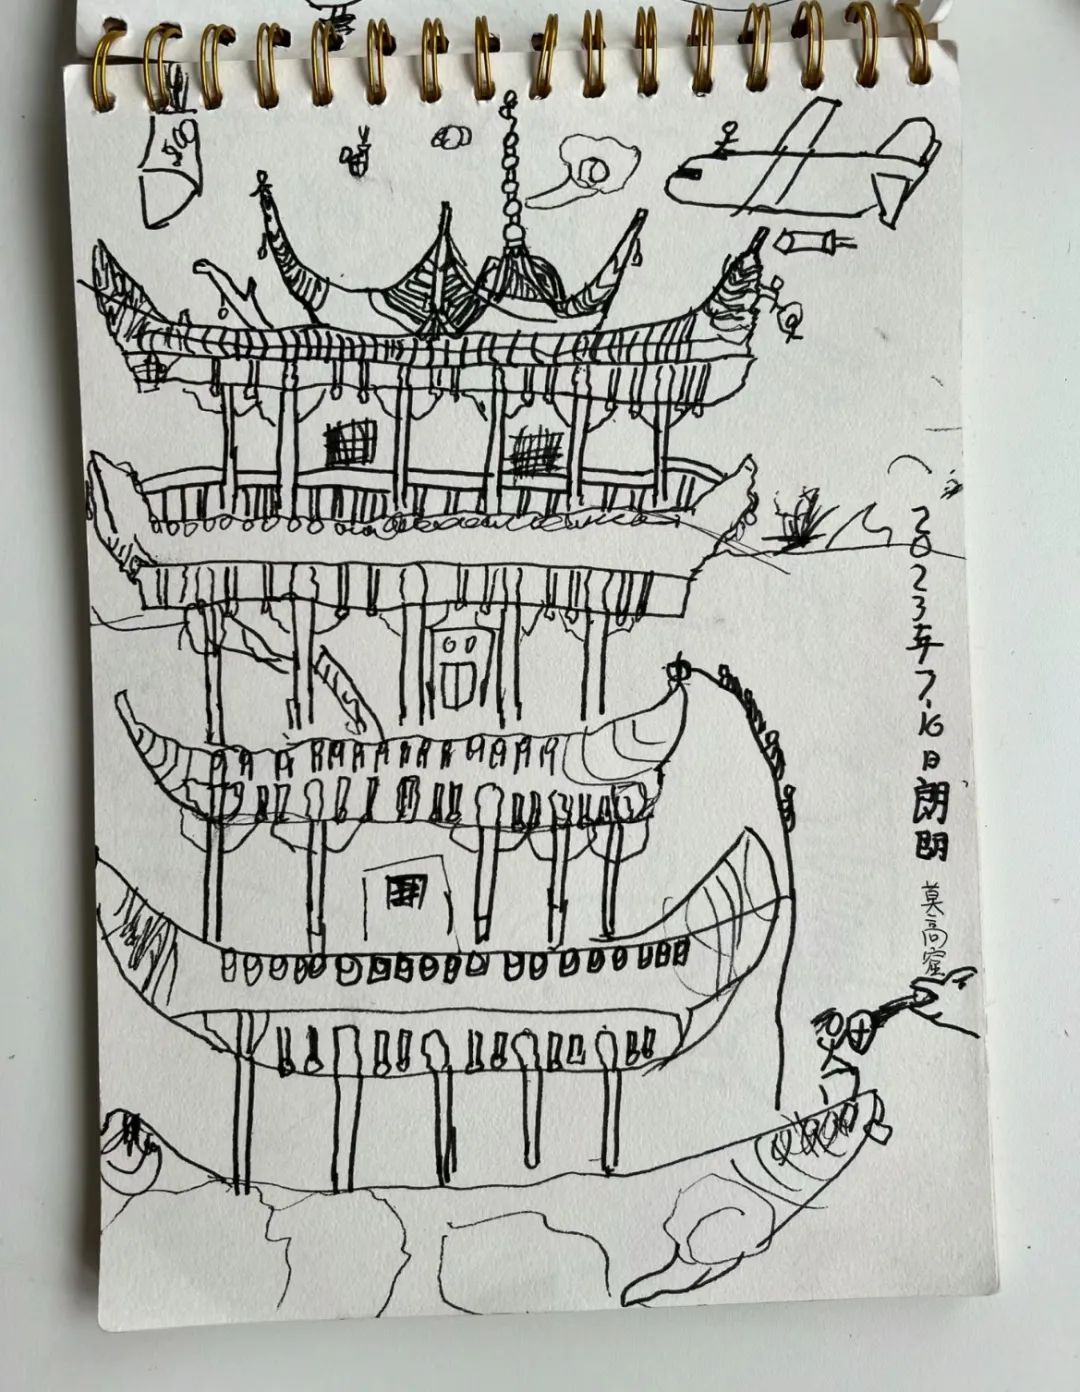 2023年7.16日朗朗 莫高窟